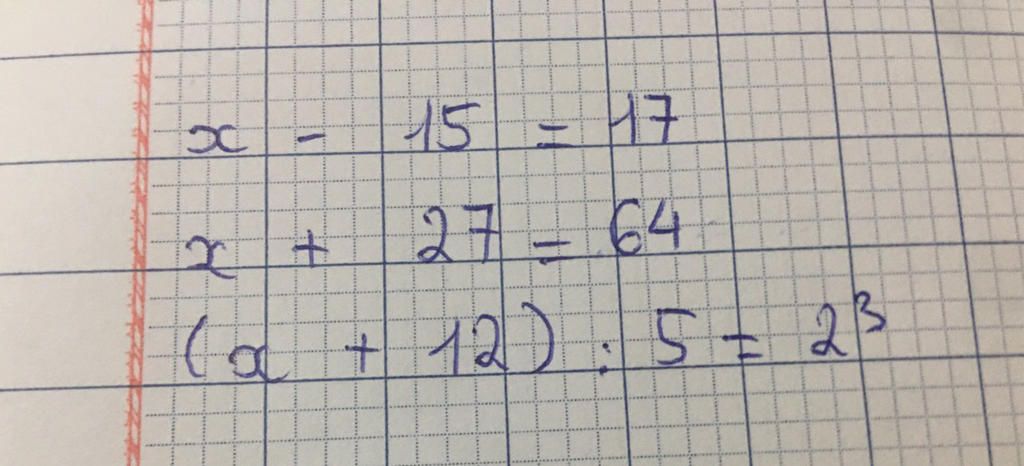 x - 15 = 17
x + 27 = 64
(x + 12) : 5 = 2³